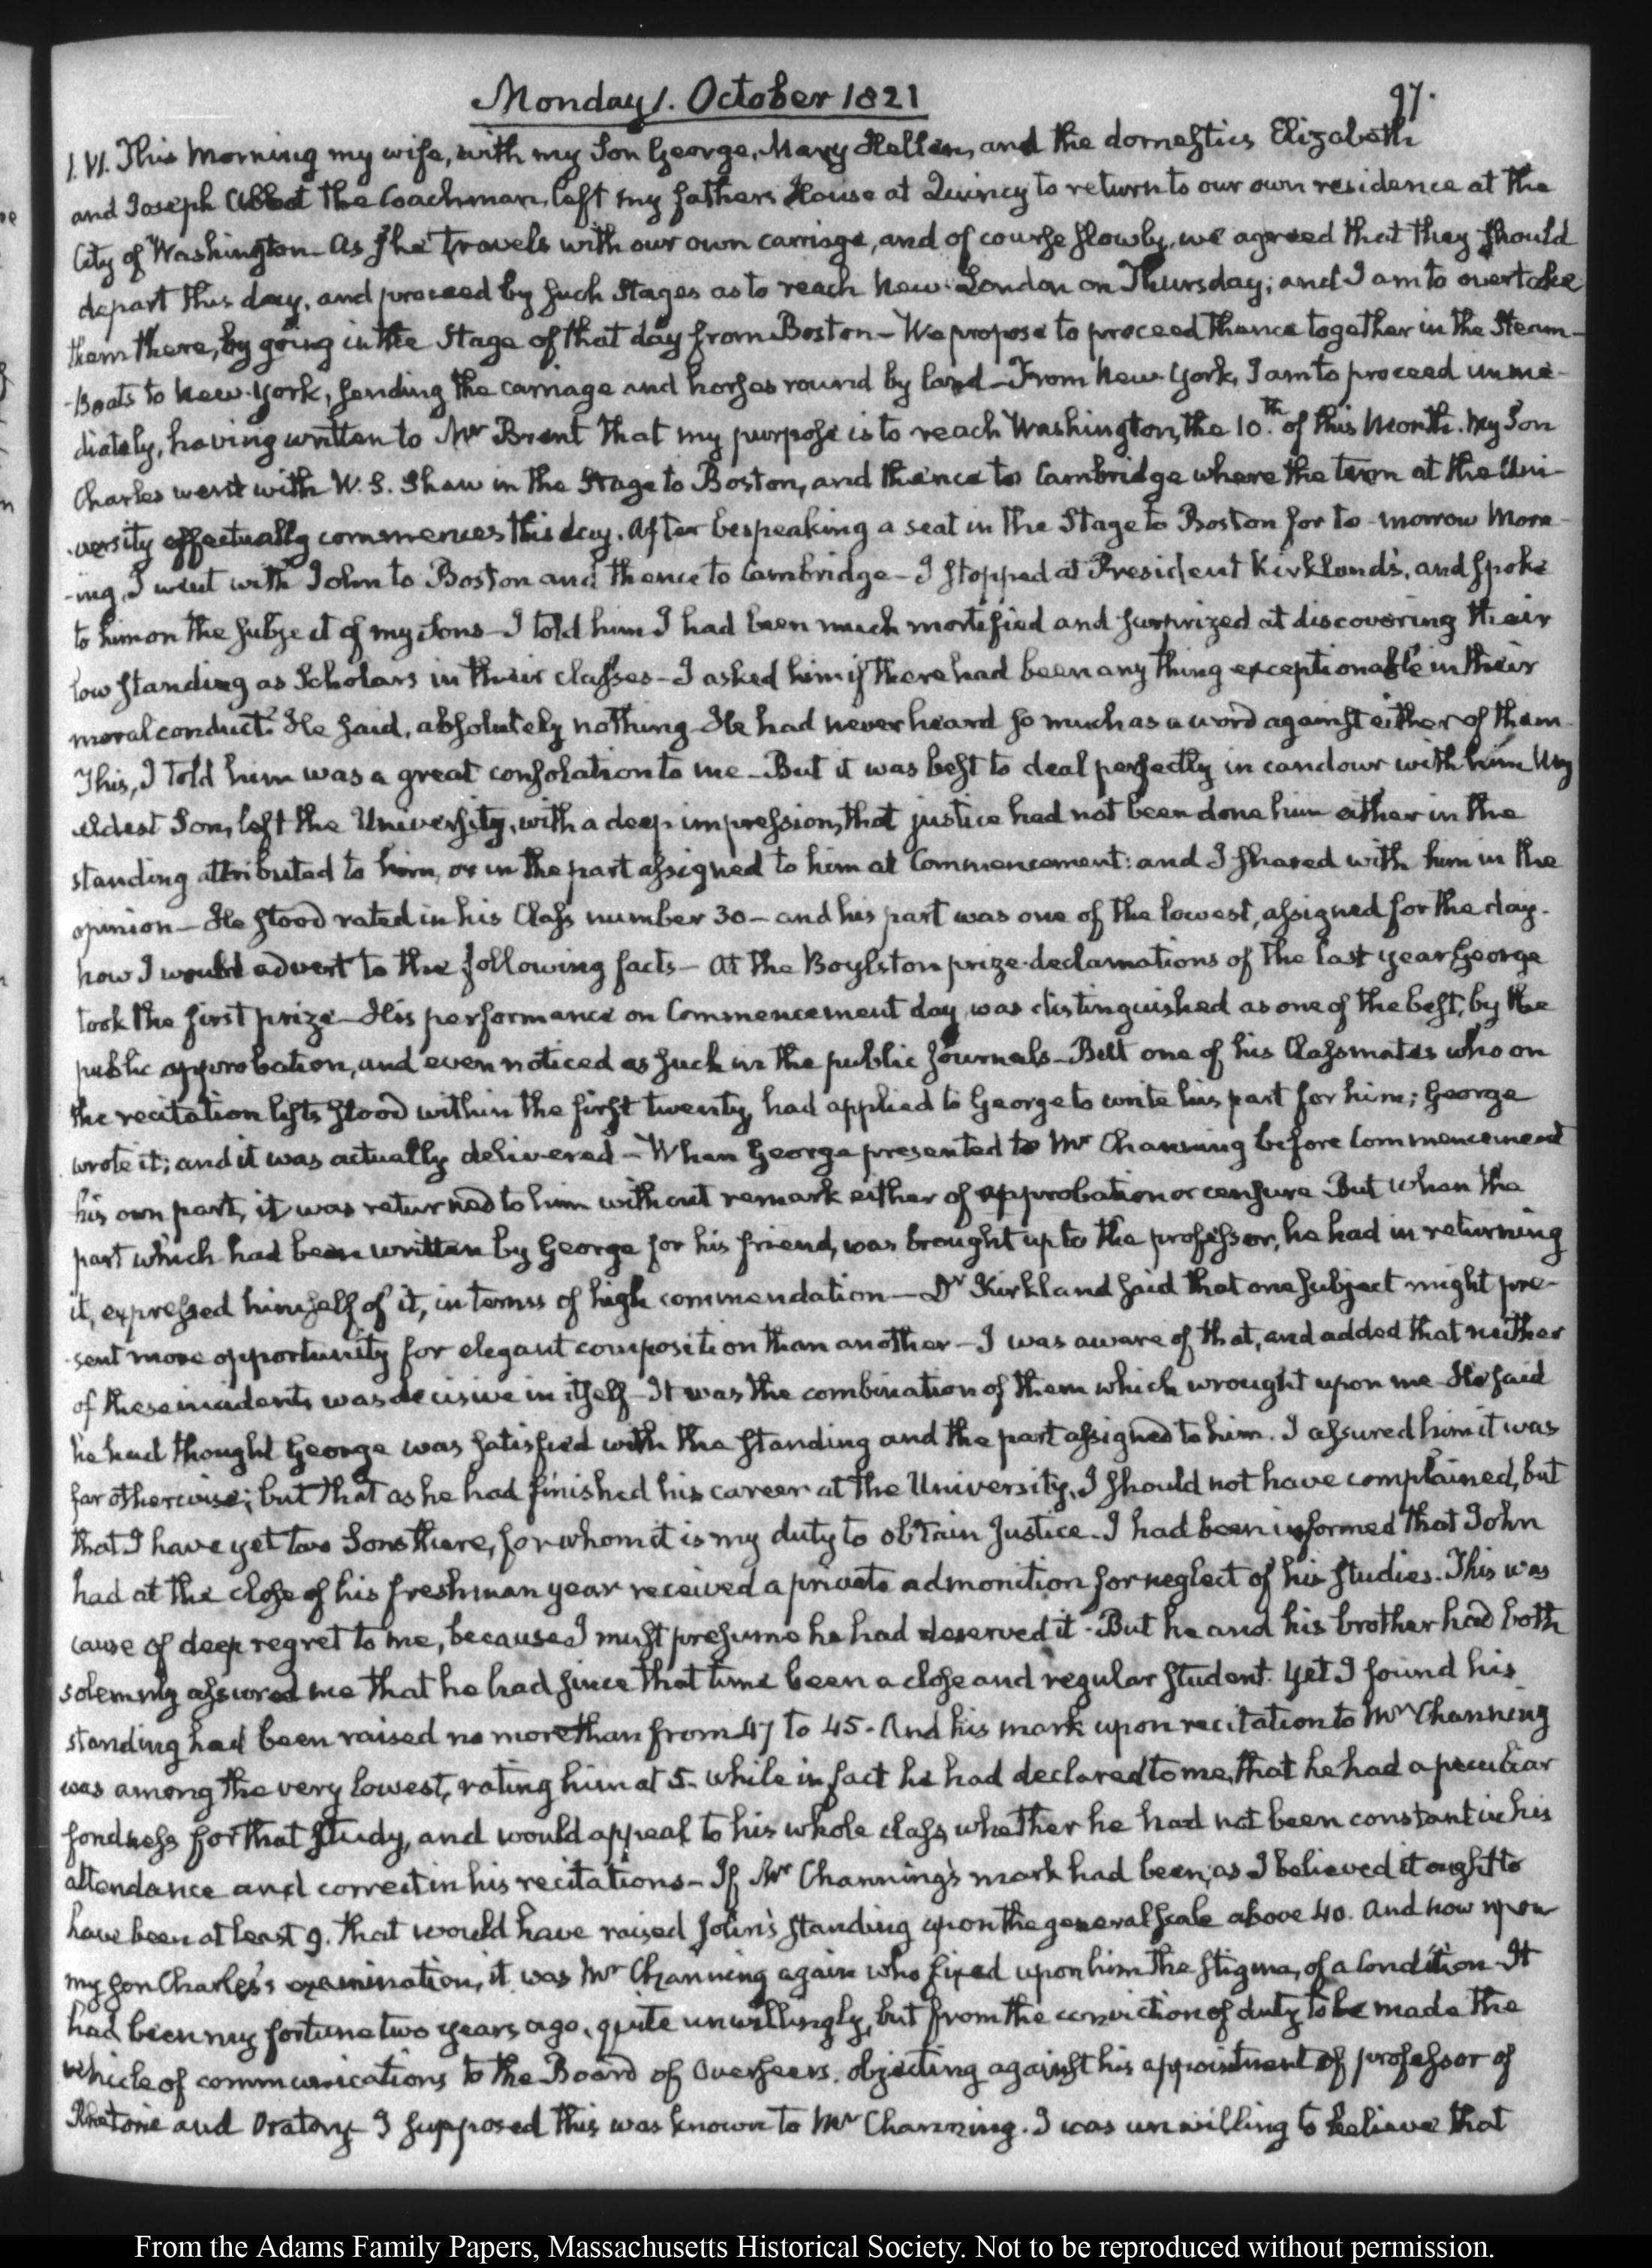 Monday 1. October 1821
97.
I. VI. This Morning my wife, with my Son George, Mary Hellen, and the domestics Elizabeth
and Joseph Abbot the Coachman, left my fathers House at Quincy to return to our own residence at the
City of Washington. As she travels with our own carriage, and of course slowly, we agreed that they should
depart this day, and proceed by such Stages as to reach New-London on Thursday; and I am to overtake
them there, by going in the Stage of that day from Boston - We propose to proceed thence together in the Steam-
-Boats to New-York, sending the carriage and horses round by land - From New-York, I am to proceed imme-
diately, having written to Mr Brent that my purpose is to reach Washington, the 10.th of this Month. My Son
Charles went with W. S. Shaw in the Stage to Boston, and thence to Cambridge where the term at the Uni-
-versity effectually commences this day. After bespeaking a seat in the Stage to Boston for to-morrow Morn-
-ing, I went with John to Boston and thence to Cambridge - I stopped at President Kirkland's, and spoke
to him on the subject of my Sons - I told him I had been much mortified and surprized at discovering their
low standing as Scholars in their classes - I asked him if there had been any thing exceptionable in their
moral conduct. He said, absolutely nothing - He had never heard so much as a word against either of them.
This, I told him was a great consolation to me - But it was best to deal perfectly in candour with him My
eldest Son, left the University, with a deep impression, that justice had not been done him either in the
standing attributed to him, or in the part assigned to him at Commencement: and I shared with him in the
opinion - He stood rated in his Class number 30 - and his part was one of the lowest, assigned for the day.
Now I would advert to the following facts - At the Boylston prize-declamations of the last year George
took the first prize - His performance on Commencement day, was distinguished as one of the best, by the
public approbation, and even noticed as such in the public Journals - But one of his Classmates who on
the recitation lists stood within the first twenty, had applied to George to write his part for him; George
wrote it; and it was actually delivered - When George presented to Mr Channing before Commencement
his own part, it was returned to him without remark either of approbation or censure But when the
part which had been written by George for his friend, was brought up to the professor, he had in returning
it, expressed himself of it, in terms of high commendation - Dr Kirkland said that one subject might pre-
-sent more opportunity for elegant composition than another - I was aware of that, and added that neither
of these incidents was decisive in itself - It was the combination of them which wrought upon me - He said
he had thought George was satisfied with the standing and the part assigned to him. I assured him it was
far otherwise; but that as he had finished his career at the University, I should not have complained, but
that I have yet two Sons there, for whom it is my duty to obtain Justice. I had been informed that John
had at the close of his freshman year received a private admonition for neglect of his studies. This was
cause of deep regret to me, because I must presume he had deserved it - But he and his brother had both
solemnly assured me that he had since that time been a close and regular student. Yet I found his
standing had been raised no more than from 47 to 45. And his mark upon recitation to Mr Channing
was among the very lowest, rating him at 5. while in fact he had declared to me, that he had a peculiar
fondness for that study, and would appeal to his whole class, whether he had not been constant in his
attendance and correct in his recitations - If Mr Channing's mark had been, as I believed it ought to
have been at least 9. that would have raised John's standing upon the general scale above 40. And now upon
my son Charles's examination, it was Mr Channing again who fixed upon him the stigma, of a Condition - It
had been my fortune two years ago, quite unwillingly, but from the conviction of duty to be made the
vehicle of communications to the Board of Overseers, objecting against his appointment of professor of
Rhetoric and Oratory - I supposed this was known to Mr Channing. I was unwilling to believe that
From the Adams Family Papers, Massachusetts Historical Society. Not to be reproduced without permission.